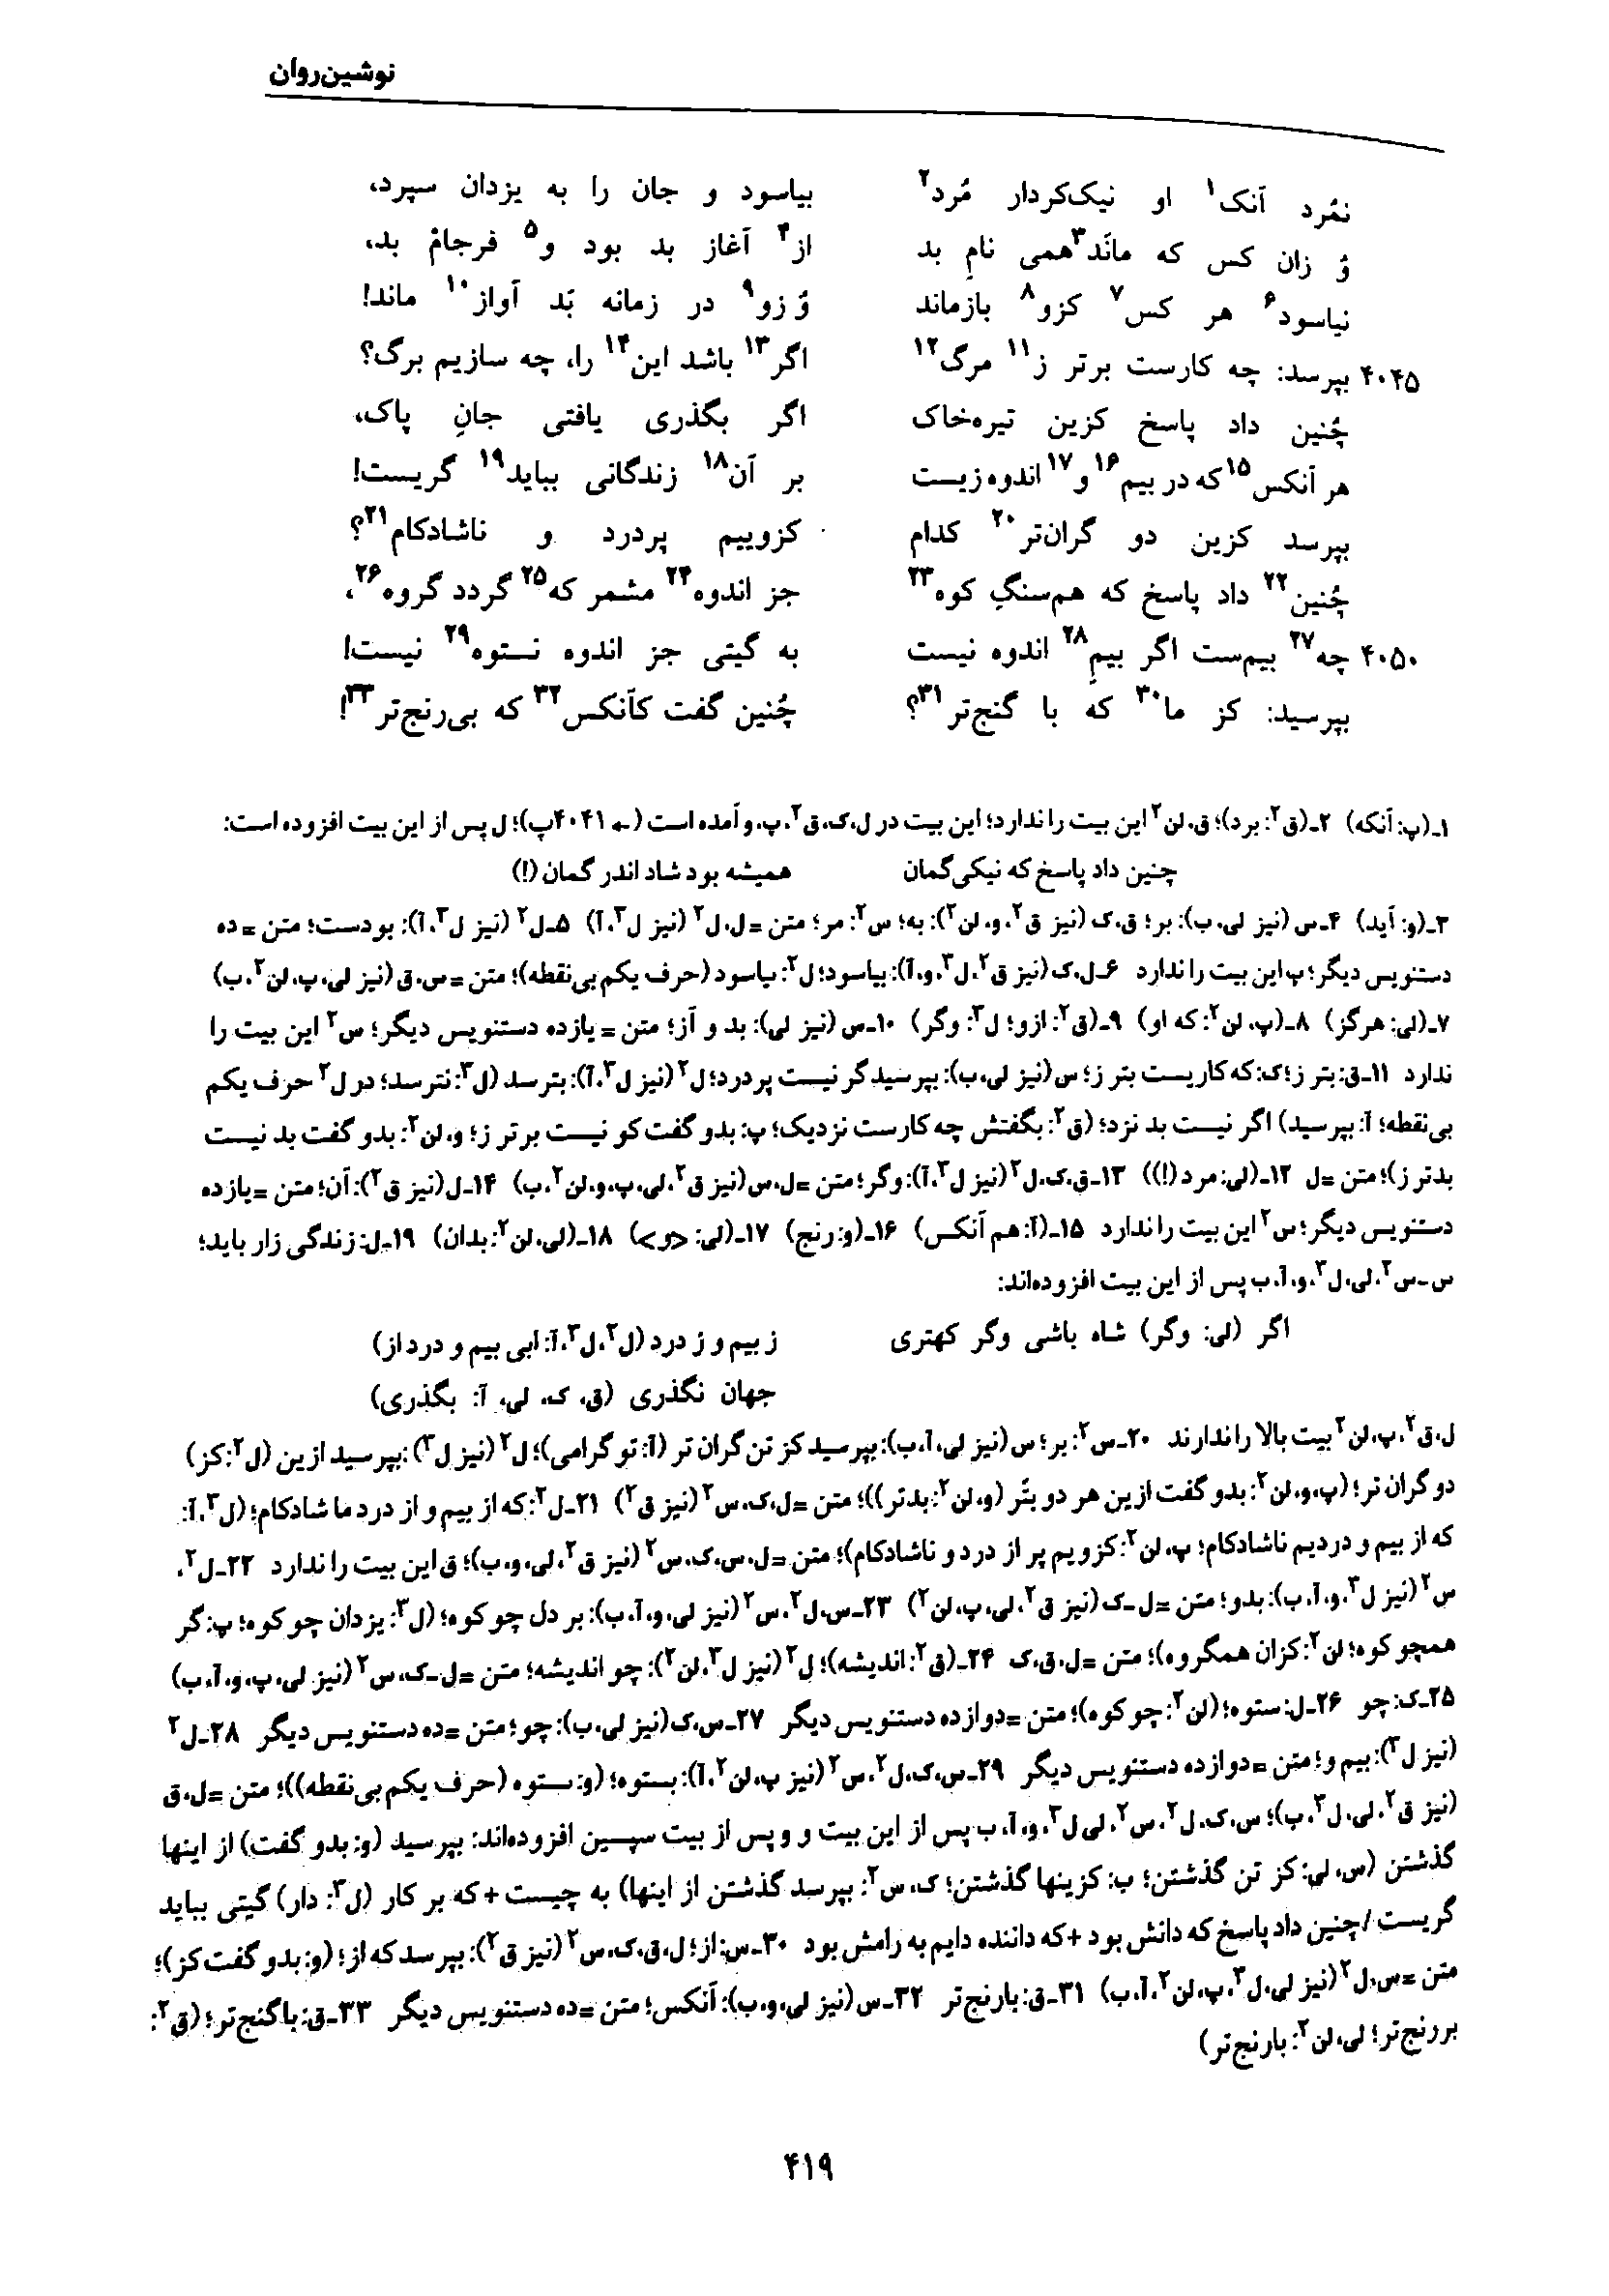 نوشین‌روان
نمُرد آنک¹ او نیک‌کردار مُرد² بیاسود و جان را به یزدان سپرد،
وُ زان کس که مانَد³ همی نامِ بد از⁴ آغاز بد بود و⁵ فرجامْ بد،
نیاسود⁶ هر کس⁷ کزو⁸ بازماند وُ زو⁹ در زمانه بَد آواز¹⁰ ماند!
۴۰۴۵ بپرسد: چه کارست برتر ز¹¹ مرگ¹² اگر¹³ باشد این¹⁴ را، چه سازیم برگ؟
چُنین داد پاسخ کزین تیره‌خاک اگر بگذری یافتی جانِ پاک،
هر آنکس¹⁵ که در بیم¹⁶ و¹⁷ اندوه زیست بر آن¹⁸ زندگانی بباید¹⁹ گریست!
بپرسد کزین دو گران‌تر²⁰ کدام کزوییم پردرد و ناشادکام²¹؟
چُنین²² داد پاسخ که هم‌سنگِ کوه²³ جز اندوه²⁴ مشمر که²⁵ گردد گروه²⁶،
۴۰۵۰ چه²⁷ بیم‌ست اگر بیمِ²⁸ اندوه نیست به گیتی جز اندوه نستوه²⁹ نیست!
بپرسید: کز ما³⁰ که با گنج‌تر³¹؟ چُنین گفت کآنکس³² که بی‌رنج‌تر³³!
۱ـ(پ: آنکه) ۲ـ(ق²: برد)؛ ق، لن² این بیت را ندارد؛ این بیت در ل، ک، ق²، پ، و آمده است (← ۴۰۴۱پ)؛ ل پس از این بیت افزوده است:
چنین داد پاسخ که نیکی‌گمان همیشه بود شاد اندر گمان (!)
۳ـ(و: آید) ۴ـس (نیز لی، ب): بر؛ ق، ک (نیز ق²، و، لن²): به؛ س²: مر؛ متن = ل، ل² (نیز ل³، آ) ۵ـل² (نیز ل³، آ): بودست؛ متن = ده
دستنویس دیگر؛ پ این بیت را ندارد ۶ـل، ک (نیز ق²، ل³، و، آ): بیاسود؛ ل²: یاسود (حرف یکم بی‌نقطه)؛ متن = س، ق (نیز لی، پ، لن²، ب)
۷ـ(لی: هرگز) ۸ـ(پ، لن²: که او) ۹ـ(ق²: ازو؛ ل³: وگر) ۱۰ـس (نیز لی): بد و آز؛ متن = یازده دستنویس دیگر؛ س² این بیت را
ندارد ۱۱ـق: بتر ز؛ ک: که کاریست بتر ز؛ س (نیز لی، ب): بپرسید گر نیست پردرد؛ ل² (نیز ل³، آ): بترسد (ل³: نترسد؛ در ل² حرف یکم
بی‌نقطه؛ آ: بپرسید) اگر نیست بد نزد؛ (ق²: بگفتش چه کارست نزدیک؛ پ: بدو گفت کو نیست برتر ز؛ و، لن²: بدو گفت بد نیست
بدتر ز)؛ متن = ل ۱۲ـ(لی: مرد (!)) ۱۳ـق، ک، ل² (نیز ل³، آ): وگر؛ متن = ل، س (نیز ق²، لی، پ، و، لن²، ب) ۱۴ـل (نیز ق²): آن؛ متن = یازده
دستنویس دیگر؛ س² این بیت را ندارد ۱۵ـ(آ: هم آنکس) ۱۶ـ(و: رنج) ۱۷ـ(لی: <و>) ۱۸ـ(لی، لن²: بدان) ۱۹ـل: زندگی زار باید؛
س ـ س²، لی، ل³، و، آ، ب پس از این بیت افزوده‌اند:
اگر (لی: وگر) شاه باشی وگر کهتری ز بیم و ز درد (ل²، ل³، آ: ابی بیم و درد از)
جهان نگذری (ق، ک، لی، آ: بگذری)
ل، ق²، پ، لن² بیت بالا را ندارند ۲۰ـس²: بر؛ س (نیز لی، آ، ب): بپرسید کز تن گران تر (آ: تو گرامی)؛ ل² (نیز ل³): بپرسید ازین (ل²: کز)
دو گران تر؛ (پ، و، لن²: بدو گفت ازین هر دو بتّر (و، لن²: بدتر))؛ متن = ل، ک، س² (نیز ق²) ۲۱ـل²: که از بیم و از درد ما شادکام؛ (ل³، آ:
که از بیم و دردیم ناشادکام؛ پ، لن²: کزویم پر از درد و ناشادکام)؛ متن = ل، س، ک، س² (نیز ق²، لی، و، ب)؛ ق این بیت را ندارد ۲۲ـل²،
س² (نیز ل³، و، آ، ب): بدو؛ متن = ل ـ ک (نیز ق²، لی، پ، لن²) ۲۳ـس، ل²، س² (نیز لی، و، آ، ب): بر دل چو کوه؛ (ل³: یزدان چو کوه؛ پ: گر
همچو کوه؛ لن²: کزان همگروه)؛ متن = ل، ق، ک ۲۴ـ(ق²: اندیشه)؛ ل² (نیز ل³، لن²): چو اندیشه؛ متن = ل ـ ک، س² (نیز لی، پ، و، آ، ب)
۲۵ـک: چو ۲۶ـل: ستوه؛ (لن²: چو کوه)؛ متن = دوازده دستنویس دیگر ۲۷ـس، ک (نیز لی، ب): چو؛ متن = ده دستنویس دیگر ۲۸ـل²
(نیز ل³): بیم و؛ متن = دوازده دستنویس دیگر ۲۹ـس، ک، ل²، س² (نیز پ، لن²، آ): بستوه؛ (و: ستوه (حرف یکم بی‌نقطه))؛ متن = ل، ق
(نیز ق²، لی، ل³، ب)؛ س، ک، ل²، س²، لی ل³، و، آ، ب پس از این بیت و و پس از بیت سپسین افزوده‌اند: بپرسید (و: بدو گفت) از اینها
گذشتن (س، لی: کز تن گذشتن؛ ب: کزینها گذشتن؛ ک، س²: بپرسد گذشتن از اینها) به چیست + که بر کار (ل³: دار) گیتی بباید
گریست / چنین داد پاسخ که دانش بود + که داننده دایم به رامش بود ۳۰ـس: از؛ ل، ق، ک، س² (نیز ق²): بپرسد که از؛ (و: بدو گفت کز)؛
متن = س، ل² (نیز لی، ل³، پ، لن²، آ، ب) ۳۱ـق: بارنج‌تر ۳۲ـس (نیز لی، و، ب): آنکس؛ متن = ده دستنویس دیگر ۳۳ـق: باگنج‌تر؛ (ق²:
بررنج‌تر؛ لی، لن²: بارنج‌تر)
۴۱۹